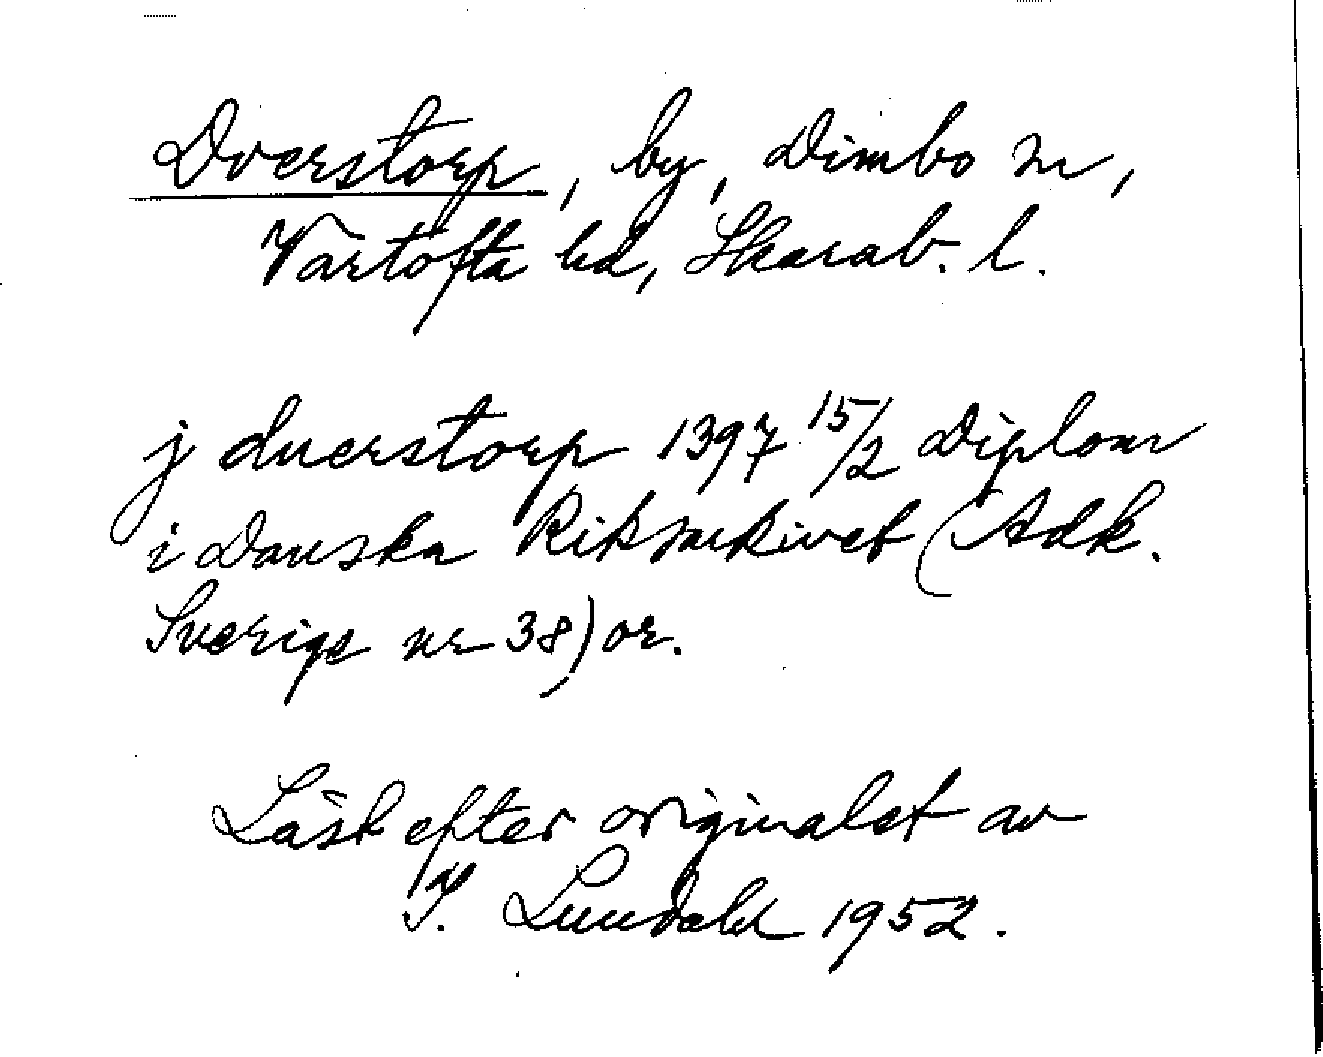 Dverstorp, by, Dimbo sn,
Vartofta hd, Skarab. l.
j duerstorp 1397 15/2 Diplom
i Danska Riksarkivet (Adk.
Sverige nr 38) or.
Läst efter originalet av
I. Lundahl 1952.